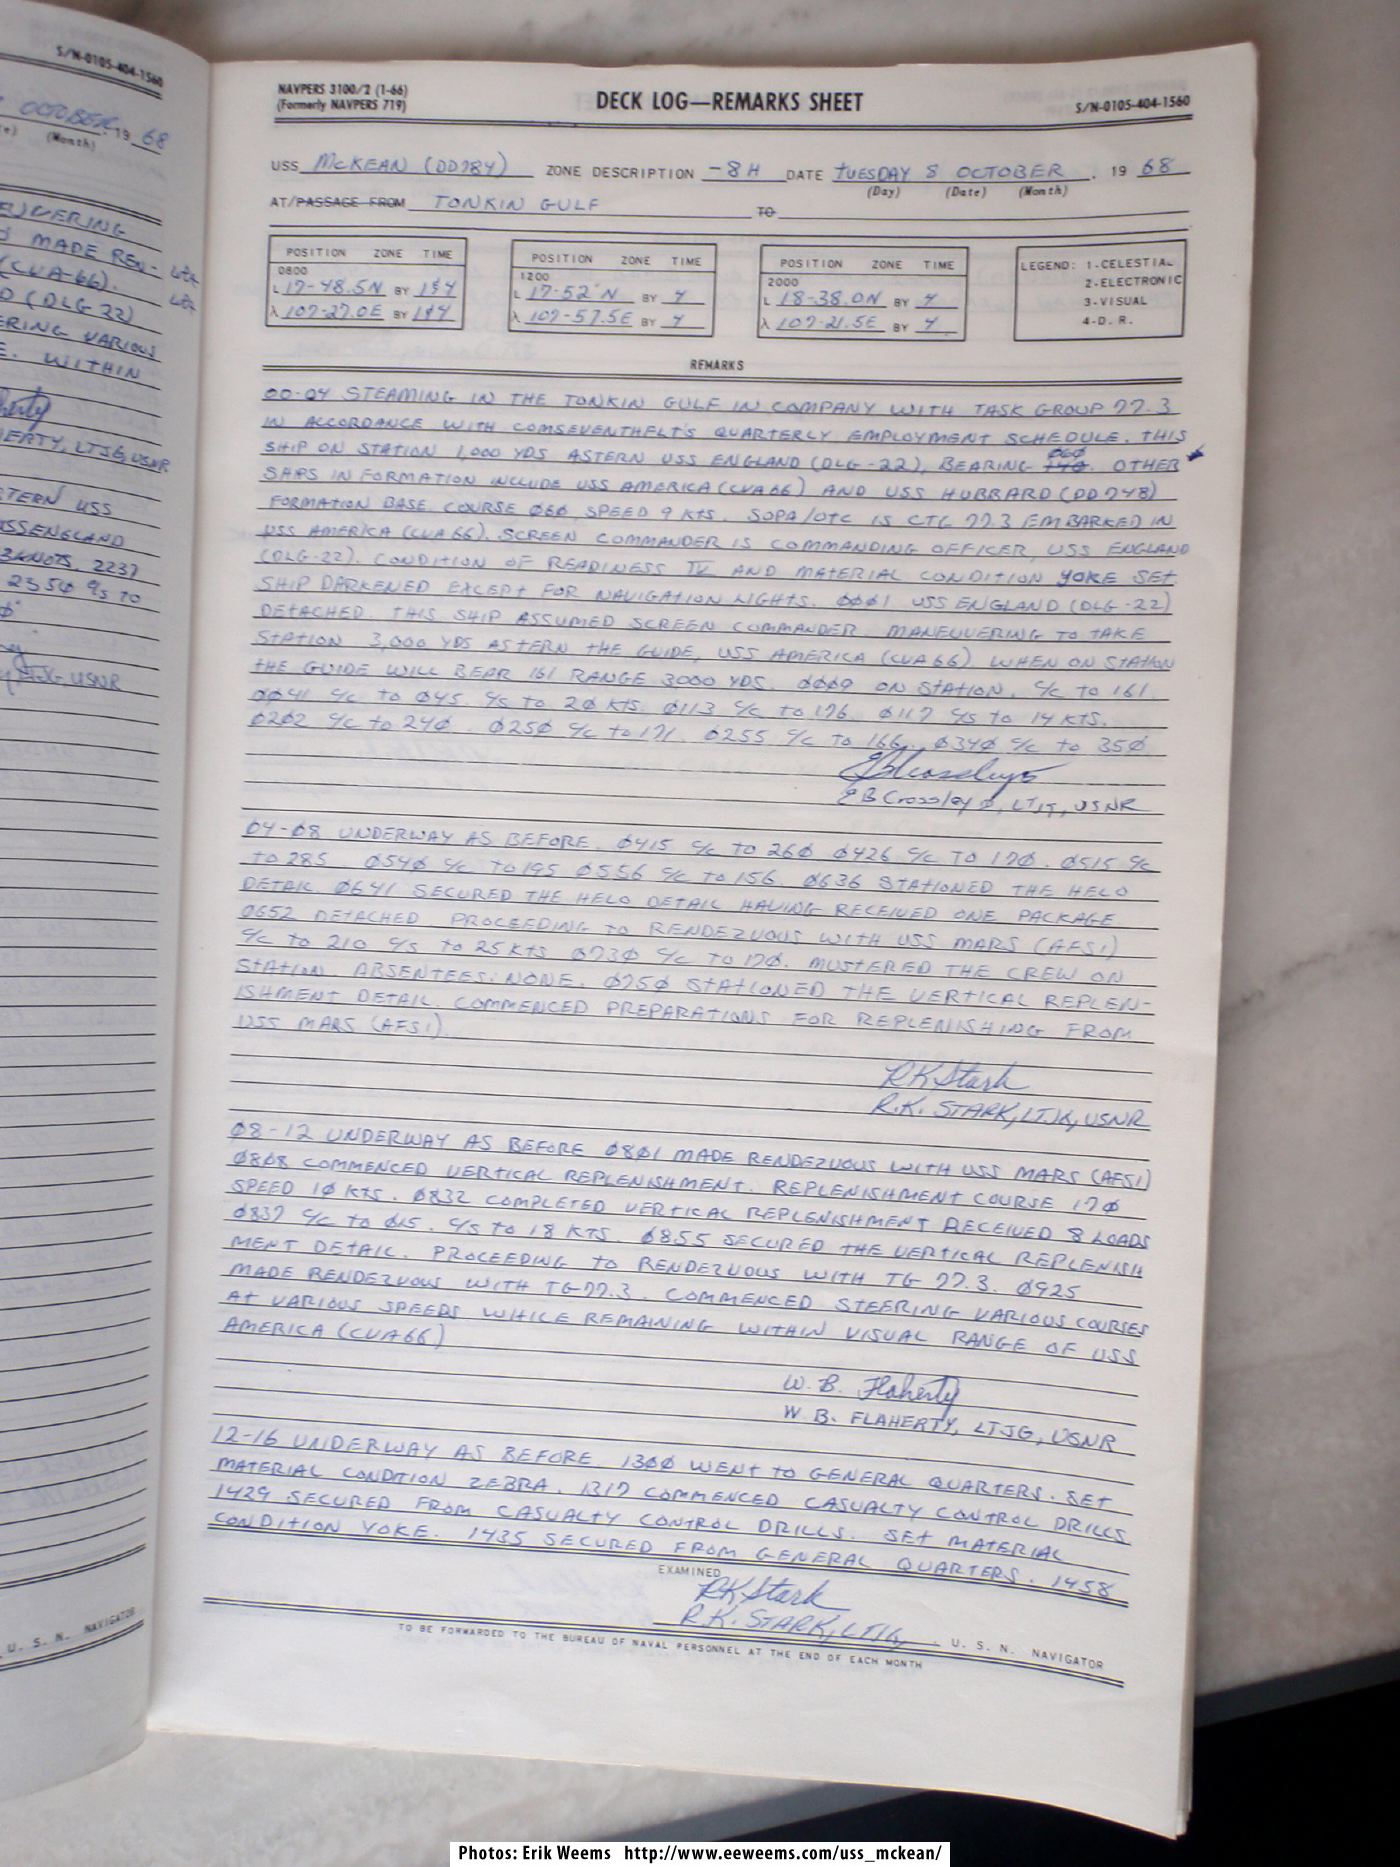 S/N-0105-404-1560
OCTOBER 19 68
(Month)
EUVERING
MADE REN-
(CVA-66).
(DLG-22)
ERING VARIOUS
E. WITHIN
herty
HERTY, LTJG, USNR
TERN USS
USS ENGLAND
KNOTS. 2237
2350 C/S TO
JG USNR
U. S. N. NAVIGATOR
NAVPERS 3100/2 (1-66)
(Formerly NAVPERS 719)
DECK LOG—REMARKS SHEET
S/N-0105-404-1560
USS McKEAN (DD784) ZONE DESCRIPTION -8H DATE TUESDAY 8 OCTOBER, 19 68
(Day) (Date) (Month)
AT/PASSAGE FROM TONKIN GULF TO
POSITION ZONE TIME
0800
L 17-48.5N BY 1&4
λ 107-27.0E BY 1&4
POSITION ZONE TIME
1200
L 17-52'N BY 4
λ 107-57.5E BY 4
POSITION ZONE TIME
2000
L 18-38.0N BY 4
λ 107-21.5E BY 4
LEGEND: 1-CELESTIAL
2-ELECTRONIC
3-VISUAL
4-D. R.
REMARKS
00-04 STEAMING IN THE TONKIN GULF IN COMPANY WITH TASK GROUP 77.3
IN ACCORDANCE WITH COMSEVENTHFLT'S QUARTERLY EMPLOYMENT SCHEDULE. THIS
SHIP ON STATION 1,000 YDS ASTERN USS ENGLAND (DLG-22), BEARING 060. OTHER
SHIPS IN FORMATION INCLUDE USS AMERICA (CVA66) AND USS HUBBARD (DD748)
FORMATION BASE COURSE 060, SPEED 9 KTS. SOPA/OTC IS CTG 77.3 EMBARKED IN
USS AMERICA (CVA66). SCREEN COMMANDER IS COMMANDING OFFICER, USS ENGLAND
(DLG-22). CONDITION OF READINESS IV AND MATERIAL CONDITION YOKE SET.
SHIP DARKENED EXCEPT FOR NAVIGATION LIGHTS. 0001 USS ENGLAND (DLG-22)
DETACHED. THIS SHIP ASSUMED SCREEN COMMANDER. MANEUVERING TO TAKE
STATION 3,000 YDS ASTERN THE GUIDE, USS AMERICA (CVA66) WHEN ON STATION
THE GUIDE WILL BEAR 161 RANGE 3000 YDS. 0009 ON STATION. C/C TO 161.
0041 C/C TO 045. C/S TO 20 KTS. 0113 C/C TO 176 0117 C/S TO 14 KTS.
0202 C/C TO 240. 0250 C/C TO 171. 0255 C/C TO 166. 0340 C/C TO 350
EB Crossley
EB Crossley, LTJG, USNR
04-08 UNDERWAY AS BEFORE. 0415 C/C TO 260 0426 C/C TO 170. 0515 C/C
TO 285 0540 C/C TO 195 0556 C/C TO 156. 0636 STATIONED THE HELO
DETAIL 0641 SECURED THE HELO DETAIL HAVING RECEIVED ONE PACKAGE
0652 DETACHED PROCEEDING TO RENDEZVOUS WITH USS MARS (AFS1)
C/C TO 210 C/S TO 25 KTS 0730 C/C TO 170. MUSTERED THE CREW ON
STATION. ABSENTEES: NONE. 0750 STATIONED THE VERTICAL REPLEN-
ISHMENT DETAIL. COMMENCED PREPARATIONS FOR REPLENISHING FROM
USS MARS (AFS1).
RK Stark
R.K. STARK, LTJG, USNR
08-12 UNDERWAY AS BEFORE 0801 MADE RENDEZVOUS WITH USS MARS (AFS1)
0808 COMMENCED VERTICAL REPLENISHMENT. REPLENISHMENT COURSE 170
SPEED 10 KTS. 0832 COMPLETED VERTICAL REPLENISHMENT RECEIVED 8 LOADS
0837 C/C TO 015. C/S TO 18 KTS. 0855 SECURED THE VERTICAL REPLENISH
MENT DETAIL. PROCEEDING TO RENDEZVOUS WITH TG 77.3. 0925
MADE RENDEZVOUS WITH TG 77.3. COMMENCED STEERING VARIOUS COURSES
AT VARIOUS SPEEDS WHILE REMAINING WITHIN VISUAL RANGE OF USS
AMERICA (CVA66)
W. B. Flaherty
W B. FLAHERTY, LTJG, USNR
12-16 UNDERWAY AS BEFORE. 1300 WENT TO GENERAL QUARTERS. SET
MATERIAL CONDITION ZEBRA. 1317 COMMENCED CASUALTY CONTROL DRILLS
1429 SECURED FROM CASUALTY CONTROL DRILLS. SET MATERIAL
CONDITION YOKE. 1435 SECURED FROM GENERAL QUARTERS. 1458
EXAMINED
RK Stark
R.K. STARK, LTJG, U. S. N. NAVIGATOR
TO BE FORWARDED TO THE BUREAU OF NAVAL PERSONNEL AT THE END OF EACH MONTH
Photos: Erik Weems http://www.eeweems.com/uss_mckean/